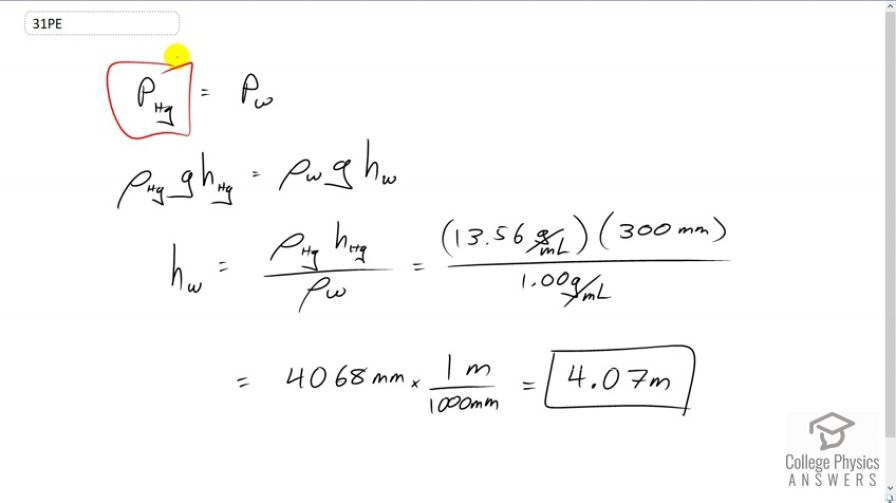 31PE
P_Hg = P_w
ρ_Hg g h_Hg = ρ_w g h_w
h_w = ρ_Hg h_Hg / ρ_w = (13.56 g/mL)(300 mm) / 1.00 g/mL
= 4068 mm × 1 m / 1000 mm = 4.07 m
College Physics
ANSWERS